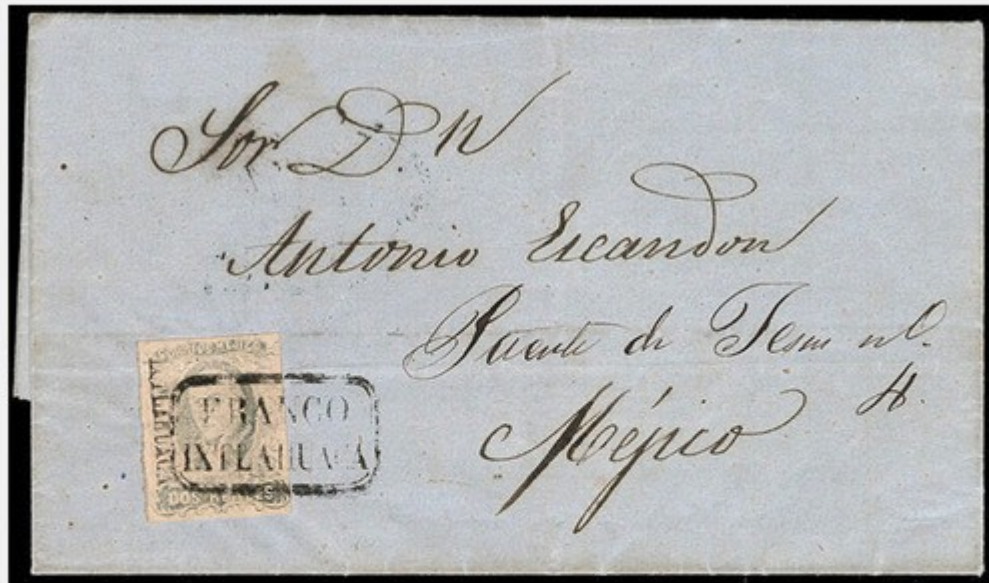 Sor. D. n
Antonio Escandon
Puente de Jesus nº.
4.
Méjico
FRANCO
IXTLAHUACA
DOS REALES